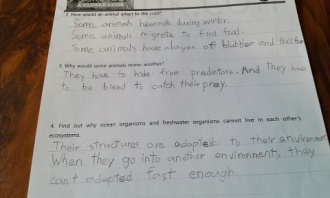 A CLOSER LOOK
2. How would an animal adapt to the cold?
Some animals hibernate during winter.
Some animals migrate to find food.
Some animals have a layer of blubber and thick fur
3. Why would some animals mimic another?
They have to hide from predators. And they have
to be blend to catch their prey.
4. Find out why ocean organisms and freshwater organisms cannot live in each other's
ecosystems.
Their structures are adapted to their environment
When they go into another environment, they
can't adapted fast enough